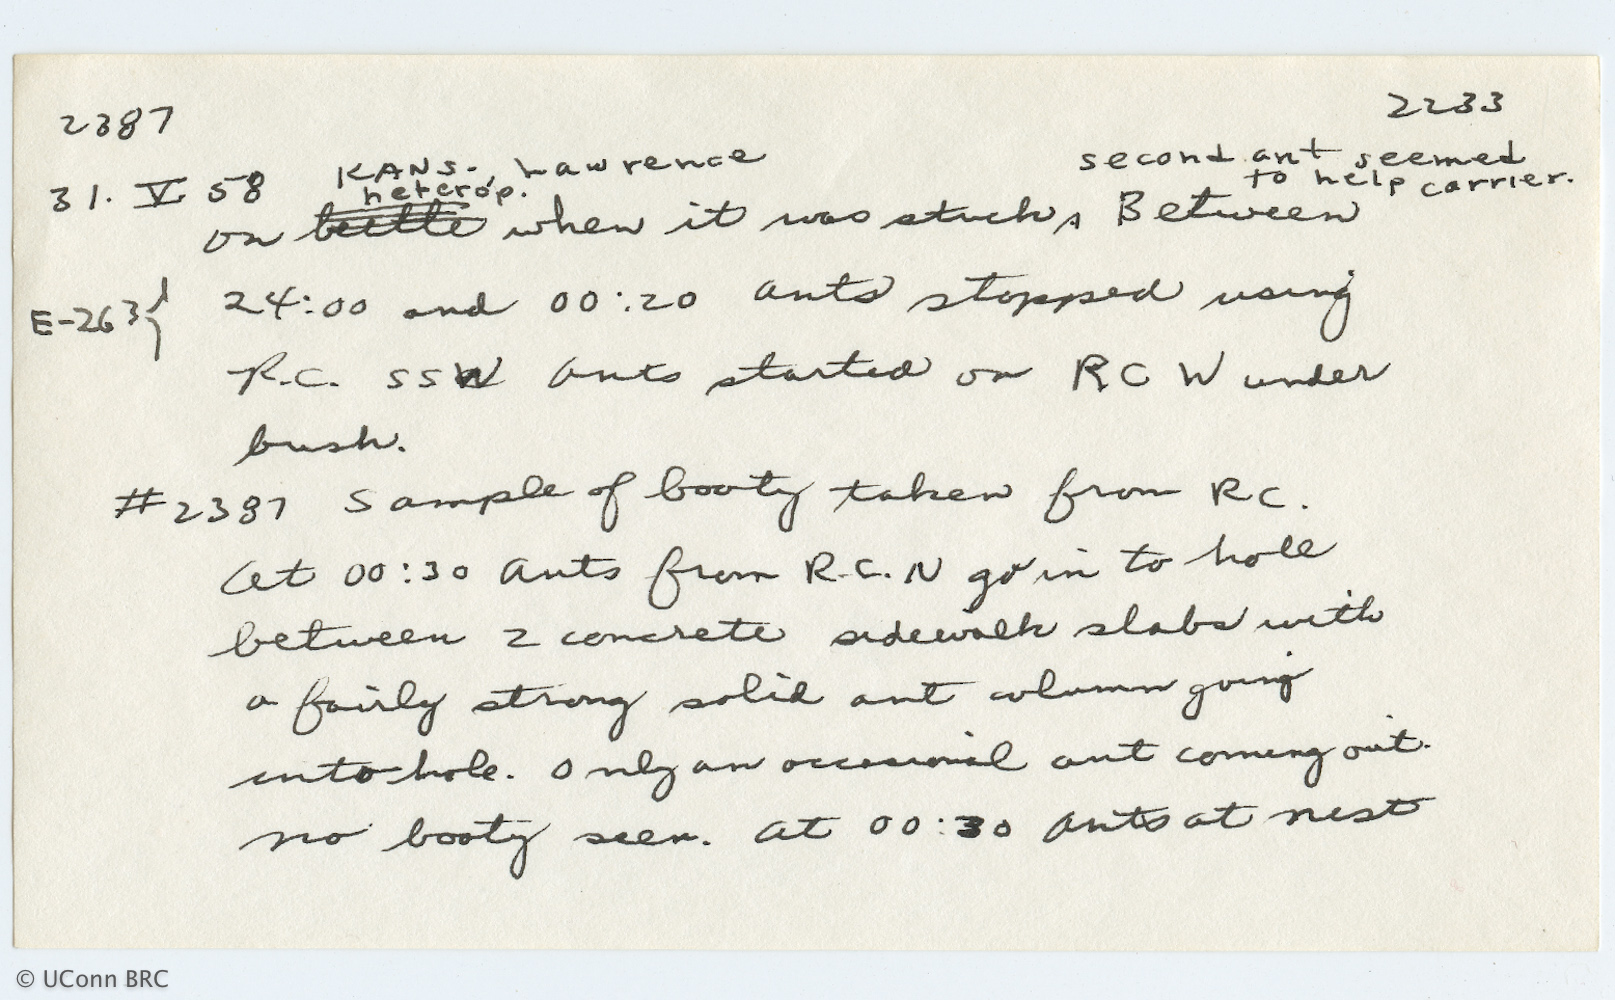 2387
2233
31. V 58 KANS., Lawrence
second ant seemed
to help carrier.
heterop.
on beetle when it was stuck, Between
E-263} 24:00 and 00:20 ants stopped using
R.C. SSW ants started on RC W under
bush.
#2387 Sample of booty taken from RC.
At 00:30 ants from R.C. N go in to hole
between 2 concrete sidewalk slabs with
a fairly strong solid ant column going
into hole. Only an occasional ant coming out.
no booty seen. At 00:30 ants at nest
© UConn BRC